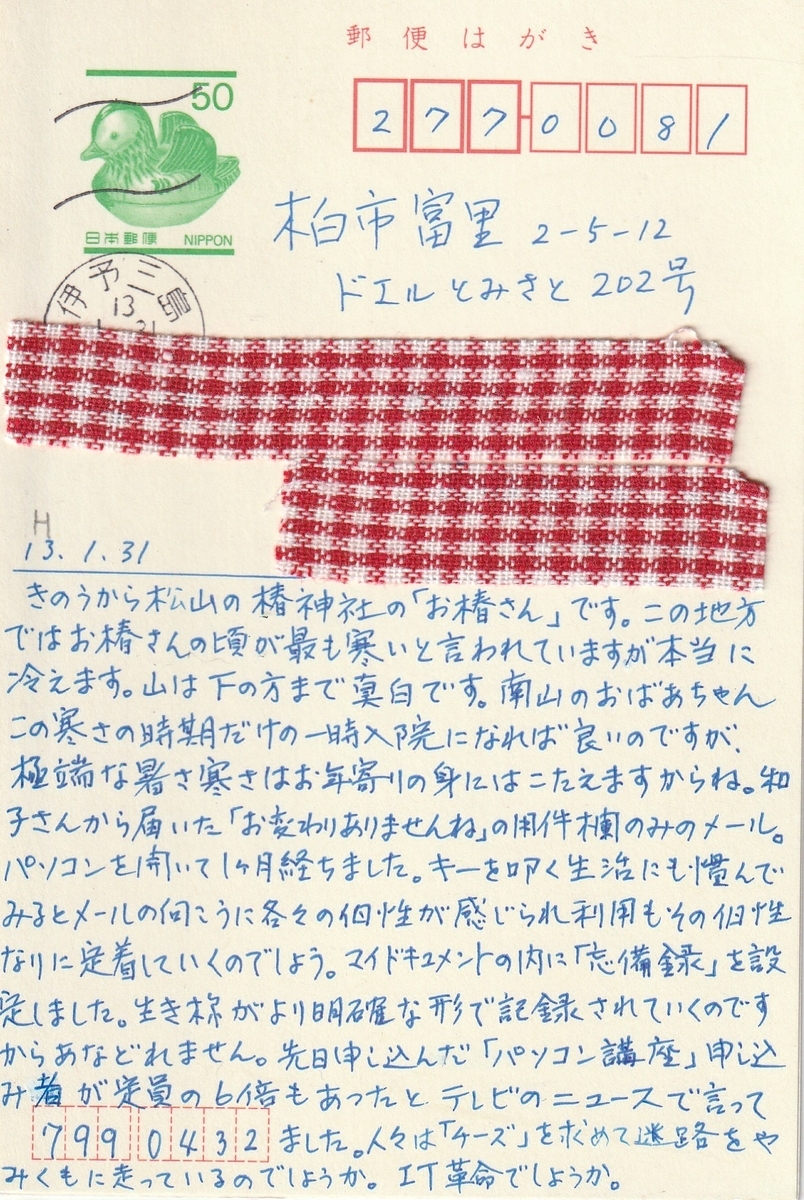 郵便はがき
50
日本郵便 NIPPON
277-0081
柏市富里 2-5-12
ドエルとみさと 202号
伊予三島
13
H
13.1.31
きのうから松山の椿神社の「お椿さん」です。この地方
ではお椿さんの頃が最も寒いと言われていますが本当に
冷えます。山は下の方まで真白です。南山のおばあちゃん
この寒さの時期だけの一時入院になれば良いのですが、
極端な暑さ寒さはお年寄りの身にはこたえますからね。和
子さんから届いた「お変わりありませんね」の用件欄のみのメール。
パソコンを開いて1ヶ月経ちました。キーを叩く生活にも慣んで
みるとメールの向こうに各々の個性が感じられ利用もその個性
なりに定着していくのでしょう。マイドキュメントの内に「忘備録」を設
定しました。生き様がより明確な形で記録されていくのです
からあなどれません。先日申し込んだ「パソコン講座」申し込
み者が定員の6倍もあったとテレビのニュースで言って
799 0432 ました。人々は「チーズ」を求めて迷路をや
みくもに走っているのでしょうか。IT革命でしょうか。